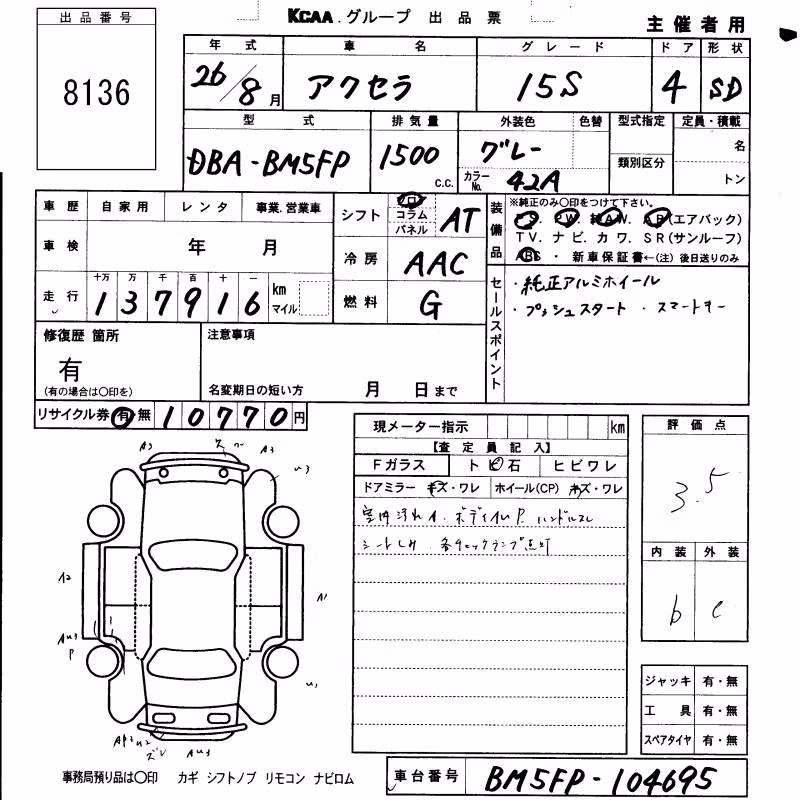 出品番号
8136
KCAA. グループ 出品票
主催者用
年式 車名 グレード ドア 形状
26/8月 アクセラ 15S 4 SD
型式 排気量 外装色 色替 型式指定 定員・積載
DBA-BM5FP 1500 c.c. グレー 名
類別区分
カラーNo. 42A トン
車歴 自家用 レンタ 事業.営業車
シフト フロア コラム パネル AT
装備品
※純正のみ〇印をつけて下さい。
PS. PW. 純AW. AB(エアバック)
TV. ナビ. カワ. SR(サンルーフ)
ABS ・ 新車保証書←(注) 後日送りのみ
車検 年 月
冷房 AAC
走行 十万 万 千 百 十 一
137916 km マイル
燃料 G
セールスポイント
・純正アルミホイール
・プッシュスタート ・スマートキー
修復歴 箇所
有
(有の場合は〇印を)
注意事項
名変期日の短い方 月 日まで
リサイクル券 有 無 10770円
現メーター指示 km
【査定員記入】
Fガラス トビ石 ヒビワレ
ドアミラー キズ・ワレ ホイール(CP) キズ・ワレ
室内汚れA. ボディイルP. ハンドルスレ
シートしみ. 各チェックランプ点灯
評価点
3.5
内装 外装
b c
A2 A3
U3
A2
A1
AU3
P
U1
AP3U2
ズレ
AU3
ジャッキ 有・無
工具 有・無
スペアタイヤ 有・無
事務局預り品は〇印 カギ シフトノブ リモコン ナビロム
車台番号 BM5FP-104695